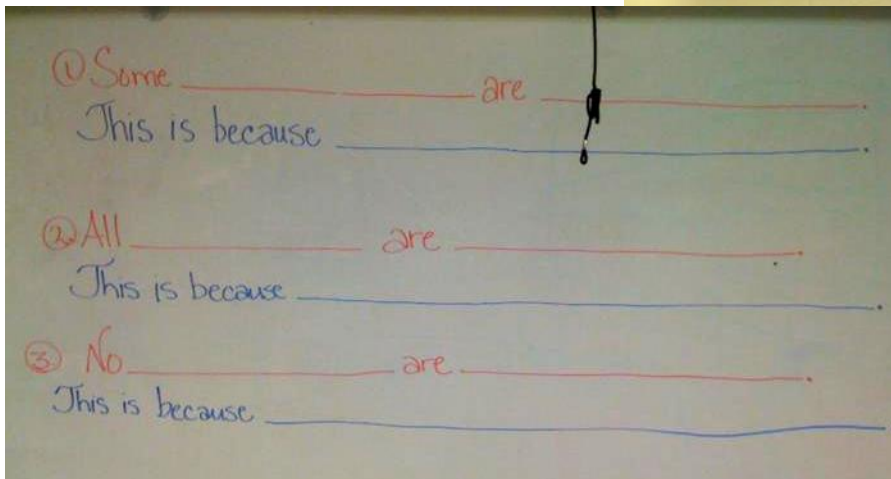 ① Some ____________ are ____________.
This is because ____________.
② All ____________ are ____________.
This is because ____________.
③ No ____________ are ____________.
This is because ____________